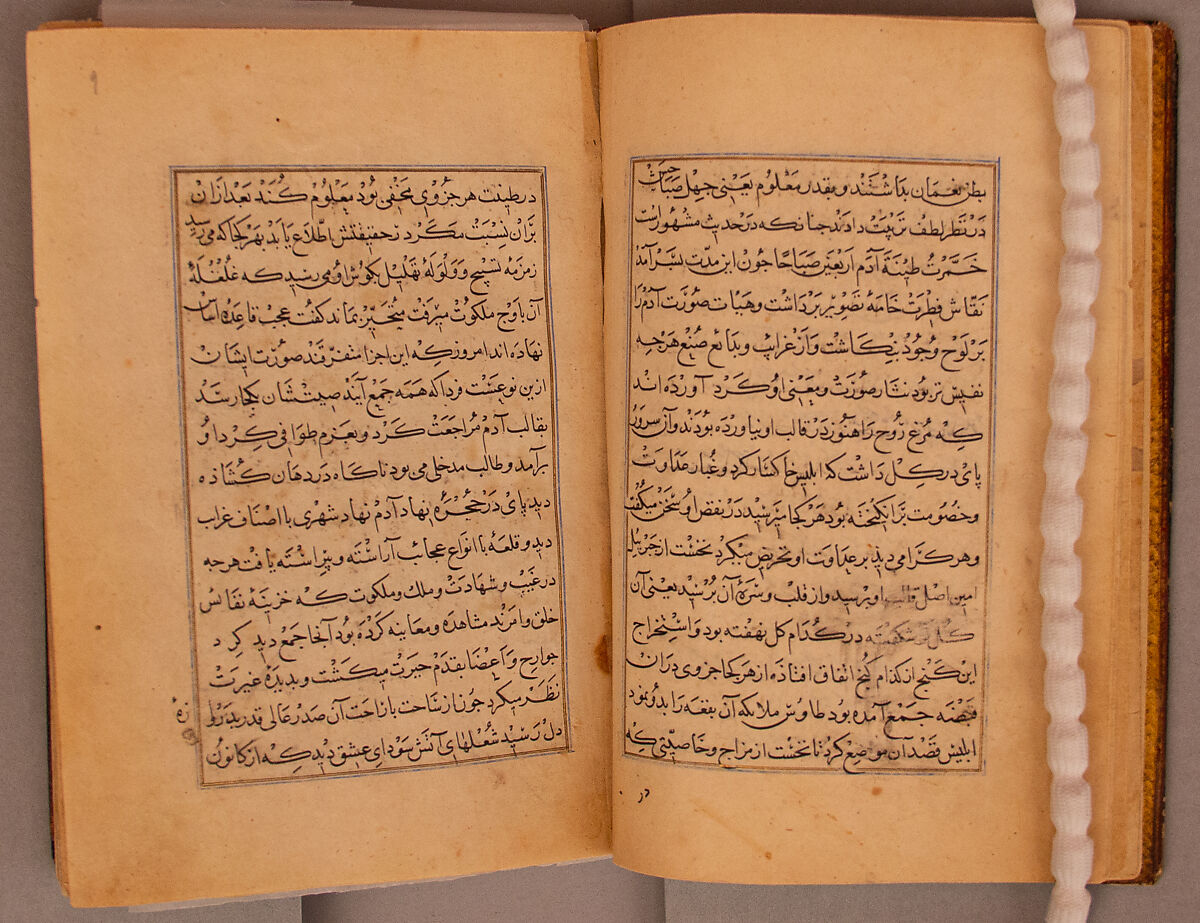 بطن نعمان بداشتند و بقدر معلوم یعنی چهل صباحش
در نظر لطف تربیت دادند چنانکه در حدیث مشهورست
خمرت طینة آدم اربعین صباحا چون این مدت بسر آمد
نقاش فطرت خامهٔ تصویر برداشت و هیات صورت آدم را
بر لوح وجود بنگاشت و از غرایب و بدائع صنع هرچه
نفیس تر بود نثار صورت و معنی او کرد آورده اند
که مرغ روح را هنوز در قالب او نیاورده بودند و آن سرور
پای در کل داشت که ابلیس خاکسار گرد و غبار عداوت
و خصومت برانگیخته بود هر کجا میرسید در نقض او سخن میگفت
و هر کرا می دید بر عداوت او تحریض میکرد نخست از جبرئیل
امین اصل قالب او پرسید و از قلب و سره آن پرسید یعنی آن
کل نشکفته در کدام کل نهفته بود و استخراج
این گنج از کدام کنج اتفاق افتاده از هر کجا جزوی در ان
قبضه جمع آمده بود طاوس ملائکه آن بقعه را بدو نمود
ابلیس قصد آن موضع کرد تا نخست از مزاج و خاصیتی که
در
در طینت هر جزوی مخفی بود معلوم کند بعد ازان
بران نسبت مکر در تحقیقتش اطلاع یابد بهر کجا که می رسید
زمزمه تسبیح و ولوله تهلیل بگوش او می رسید که غلغله
آن باوج ملکوت میرفت متحیر بماند گفت عجب قاعده اساس
نهاده اند امروز که این اجزا متفرقند صورت ایشان
ازین نوعست فردا که همه جمع آیند صیتشان بکجا رسد
بقالب آدم مراجعت کرد و بعزم طوافی گرد او
برآمد و طالب مدخلی می بود ناگاه در دهان گشاده
دید پای در حجره نهاد آدم نهاد شهری با اصناف غراب
دید و قلعه با انواع عجائب آراسته و پیراسته یافت هرچه
در غیب و شهادت و ملک و ملکوت که خزینه نفائس
خلق و امرند مشاهده و معاینه کرده بود آنجا جمع دید گرد
جوارح و اعضا بقدم حیرت میگشت و بدیده غیرت
نظر میکرد چون از ساحت با راحت آن صدر عالی قدر بدروا
زهٔ
دل رسید شعلهای آتش سودای عشق دید که از کانون